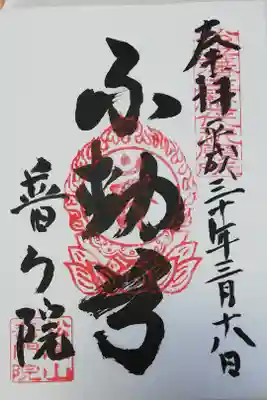 奉拝 平成三十年三月十八日
不動尊
普門院